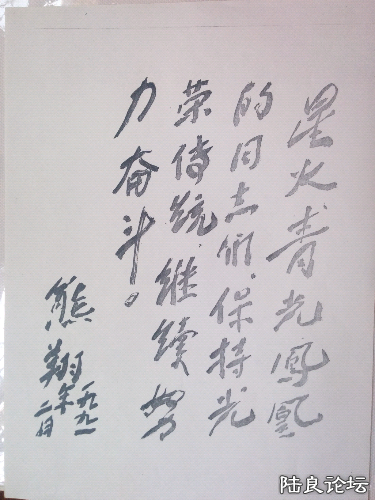 星火青光凤凰
的同志们，保持光
荣传统，继续努
力奋斗。
熊翔
一九九一年二月
陆良论坛